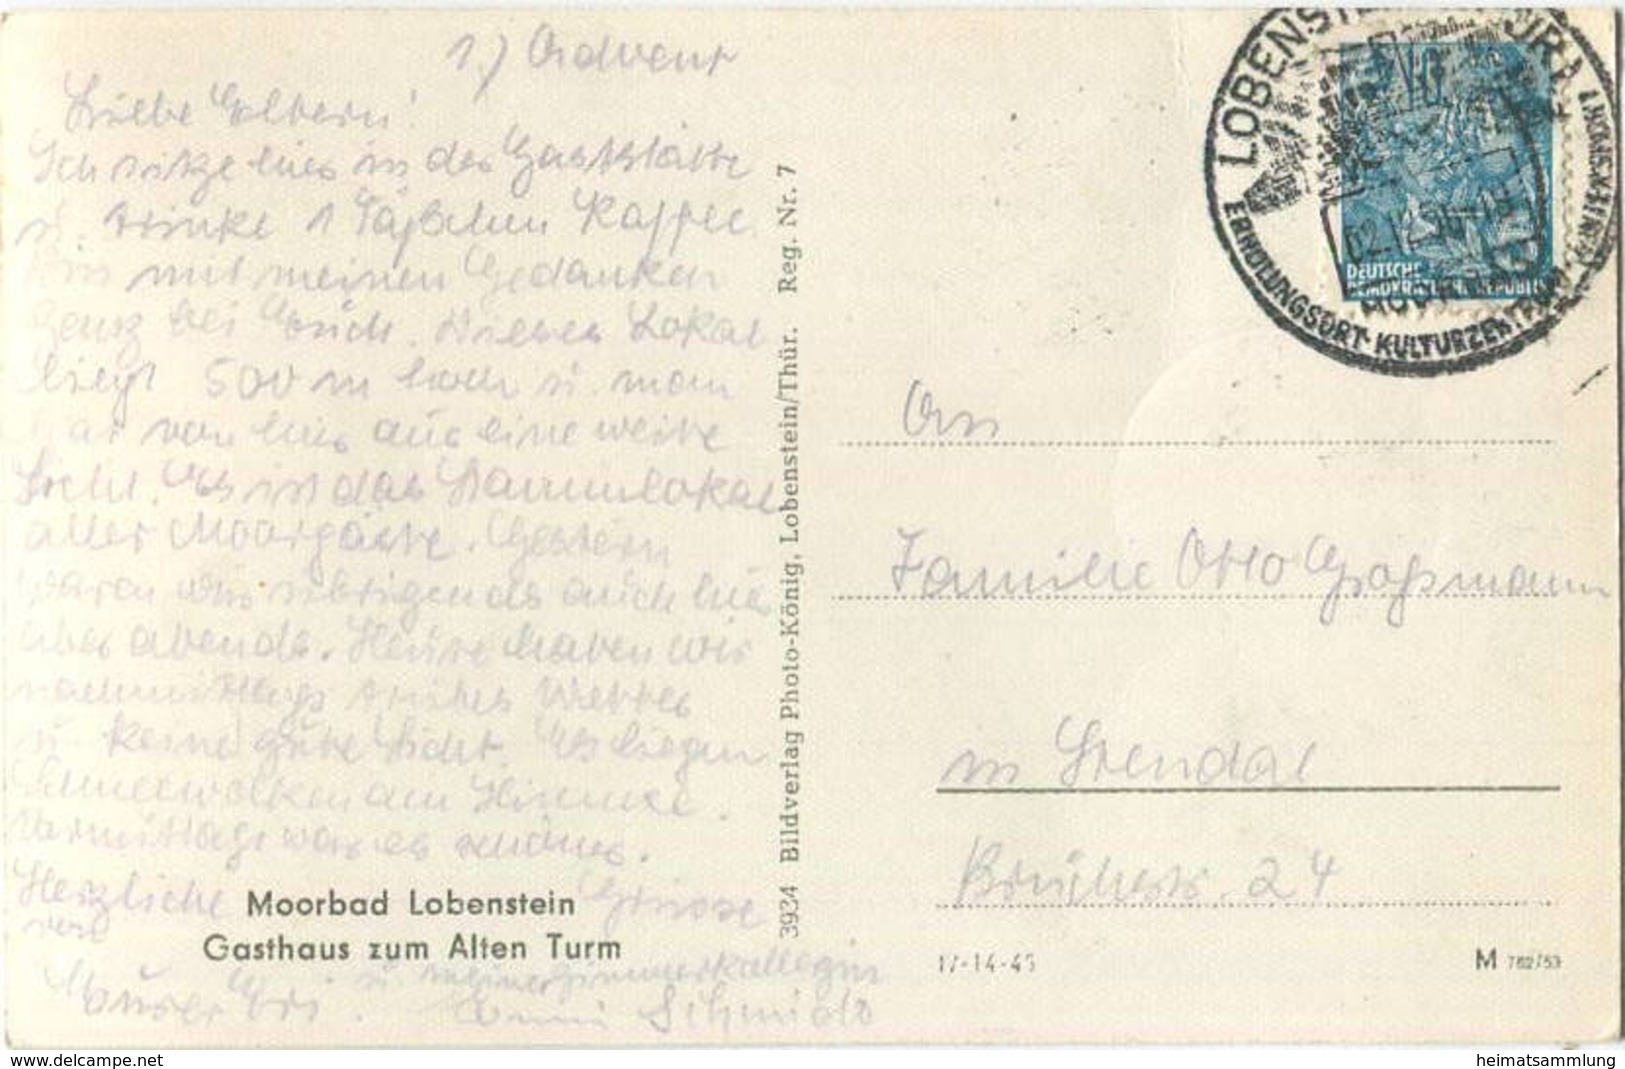 1.) Advent
Liebe Eltern!
Ich sitze hier in der Gaststätte
u. trinke 1 Täßchen Kaffee.
Bin mit meinen Gedanken
ganz bei Euch. Dieses Lokal
liegt 500 m hoch u. man
hat von hier aus eine weite
Sicht. Es ist das Stammlokal
aller Moorgäste. Gestern
waren wir übrigends auch hier
aber abends. Heute haben wir
nachmittags trübes Wetter
u. keine gute Sicht. Es liegen
Schneewolken am Himmel.
Vormittags war es schöner.
Herzliche Grüsse
von
Eurer Eri. u. meiner Zimmerkollegin
Schmidt
Moorbad Lobenstein
Gasthaus zum Alten Turm
3934 Bildverlag Photo-König, Lobenstein/Thür. Reg. Nr. 7
LOBENSTEIN THÜR
ERHOLUNGSORT-KULTURZENTRUM
02.12.56-18
DEUTSCHE
DEMOKRATISCHE REPUBLIK
An
Familie Otto Großmann
in Stendal
Brüchstr. 24
17-14-45
M 762/53
delcampe.net
heimatsammlung